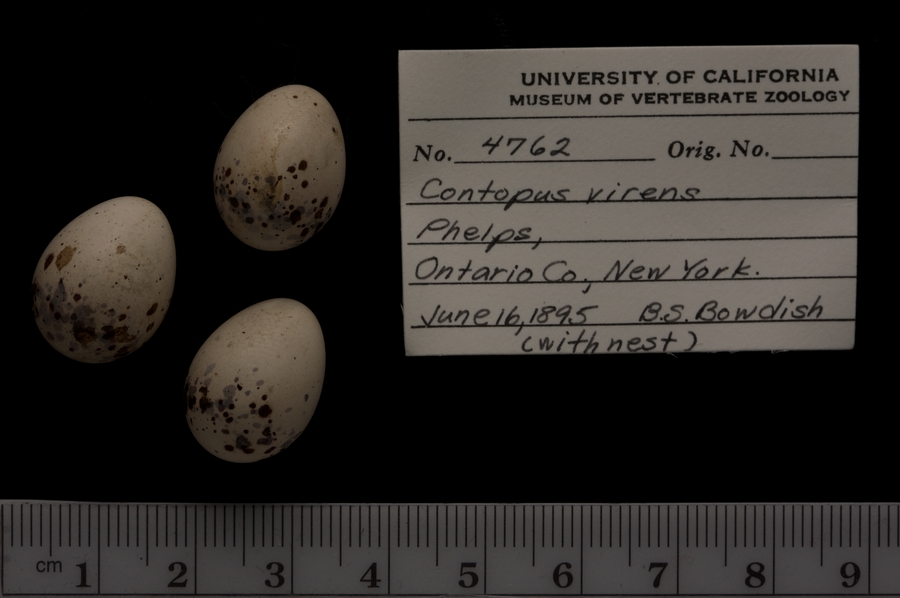 UNIVERSITY OF CALIFORNIA
MUSEUM OF VERTEBRATE ZOOLOGY
No. 4762 Orig. No.
Contopus virens
Phelps,
Ontario Co., New York.
June 16, 1895 B.S. Bowdish
(with nest)
cm 1 2 3 4 5 6 7 8 9